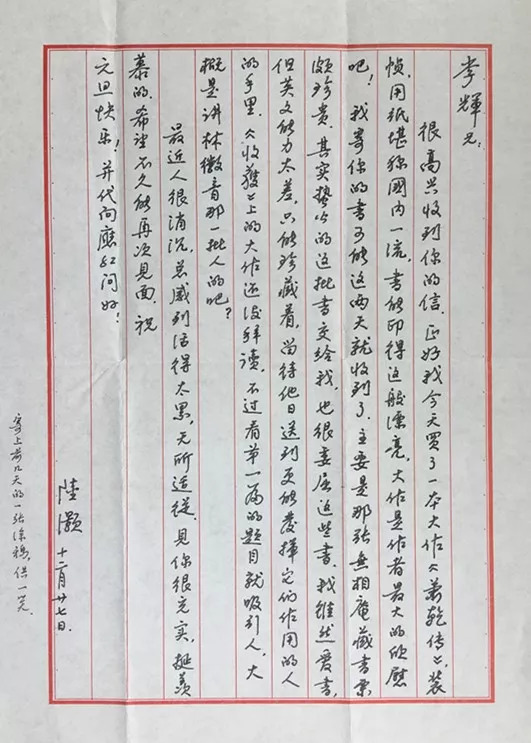 李輝兄：
很高兴收到你的信。正好我今天買了一本大作《萧乾传》，装
帧、用紙堪称國内一流，書能印得这般漂亮，大作是作者最大的欣慰
吧！我寄你的書可能这两天就收到了。主要是那张無相庵藏書票
颇珍贵。其实蛰公的这批書交给我，也很委屈这些書，我虽然爱書，
但英文能力太差，只能珍藏着，尚待他日送到更能發揮它们作用的人
的手里。《收獲》上的大作还没拜读，不过看第一篇的题目就吸引人，大
概是讲林徽音那一批人的吧？
最近人很消沉，总感到活得太累，无所适從。見你很充实，挺羡
慕的。希望不久能再次見面。祝
元旦快乐！并代向應红问好！
陸灏 十二月廿七日.
寄上前几天的一张涂鸦，供一笑.